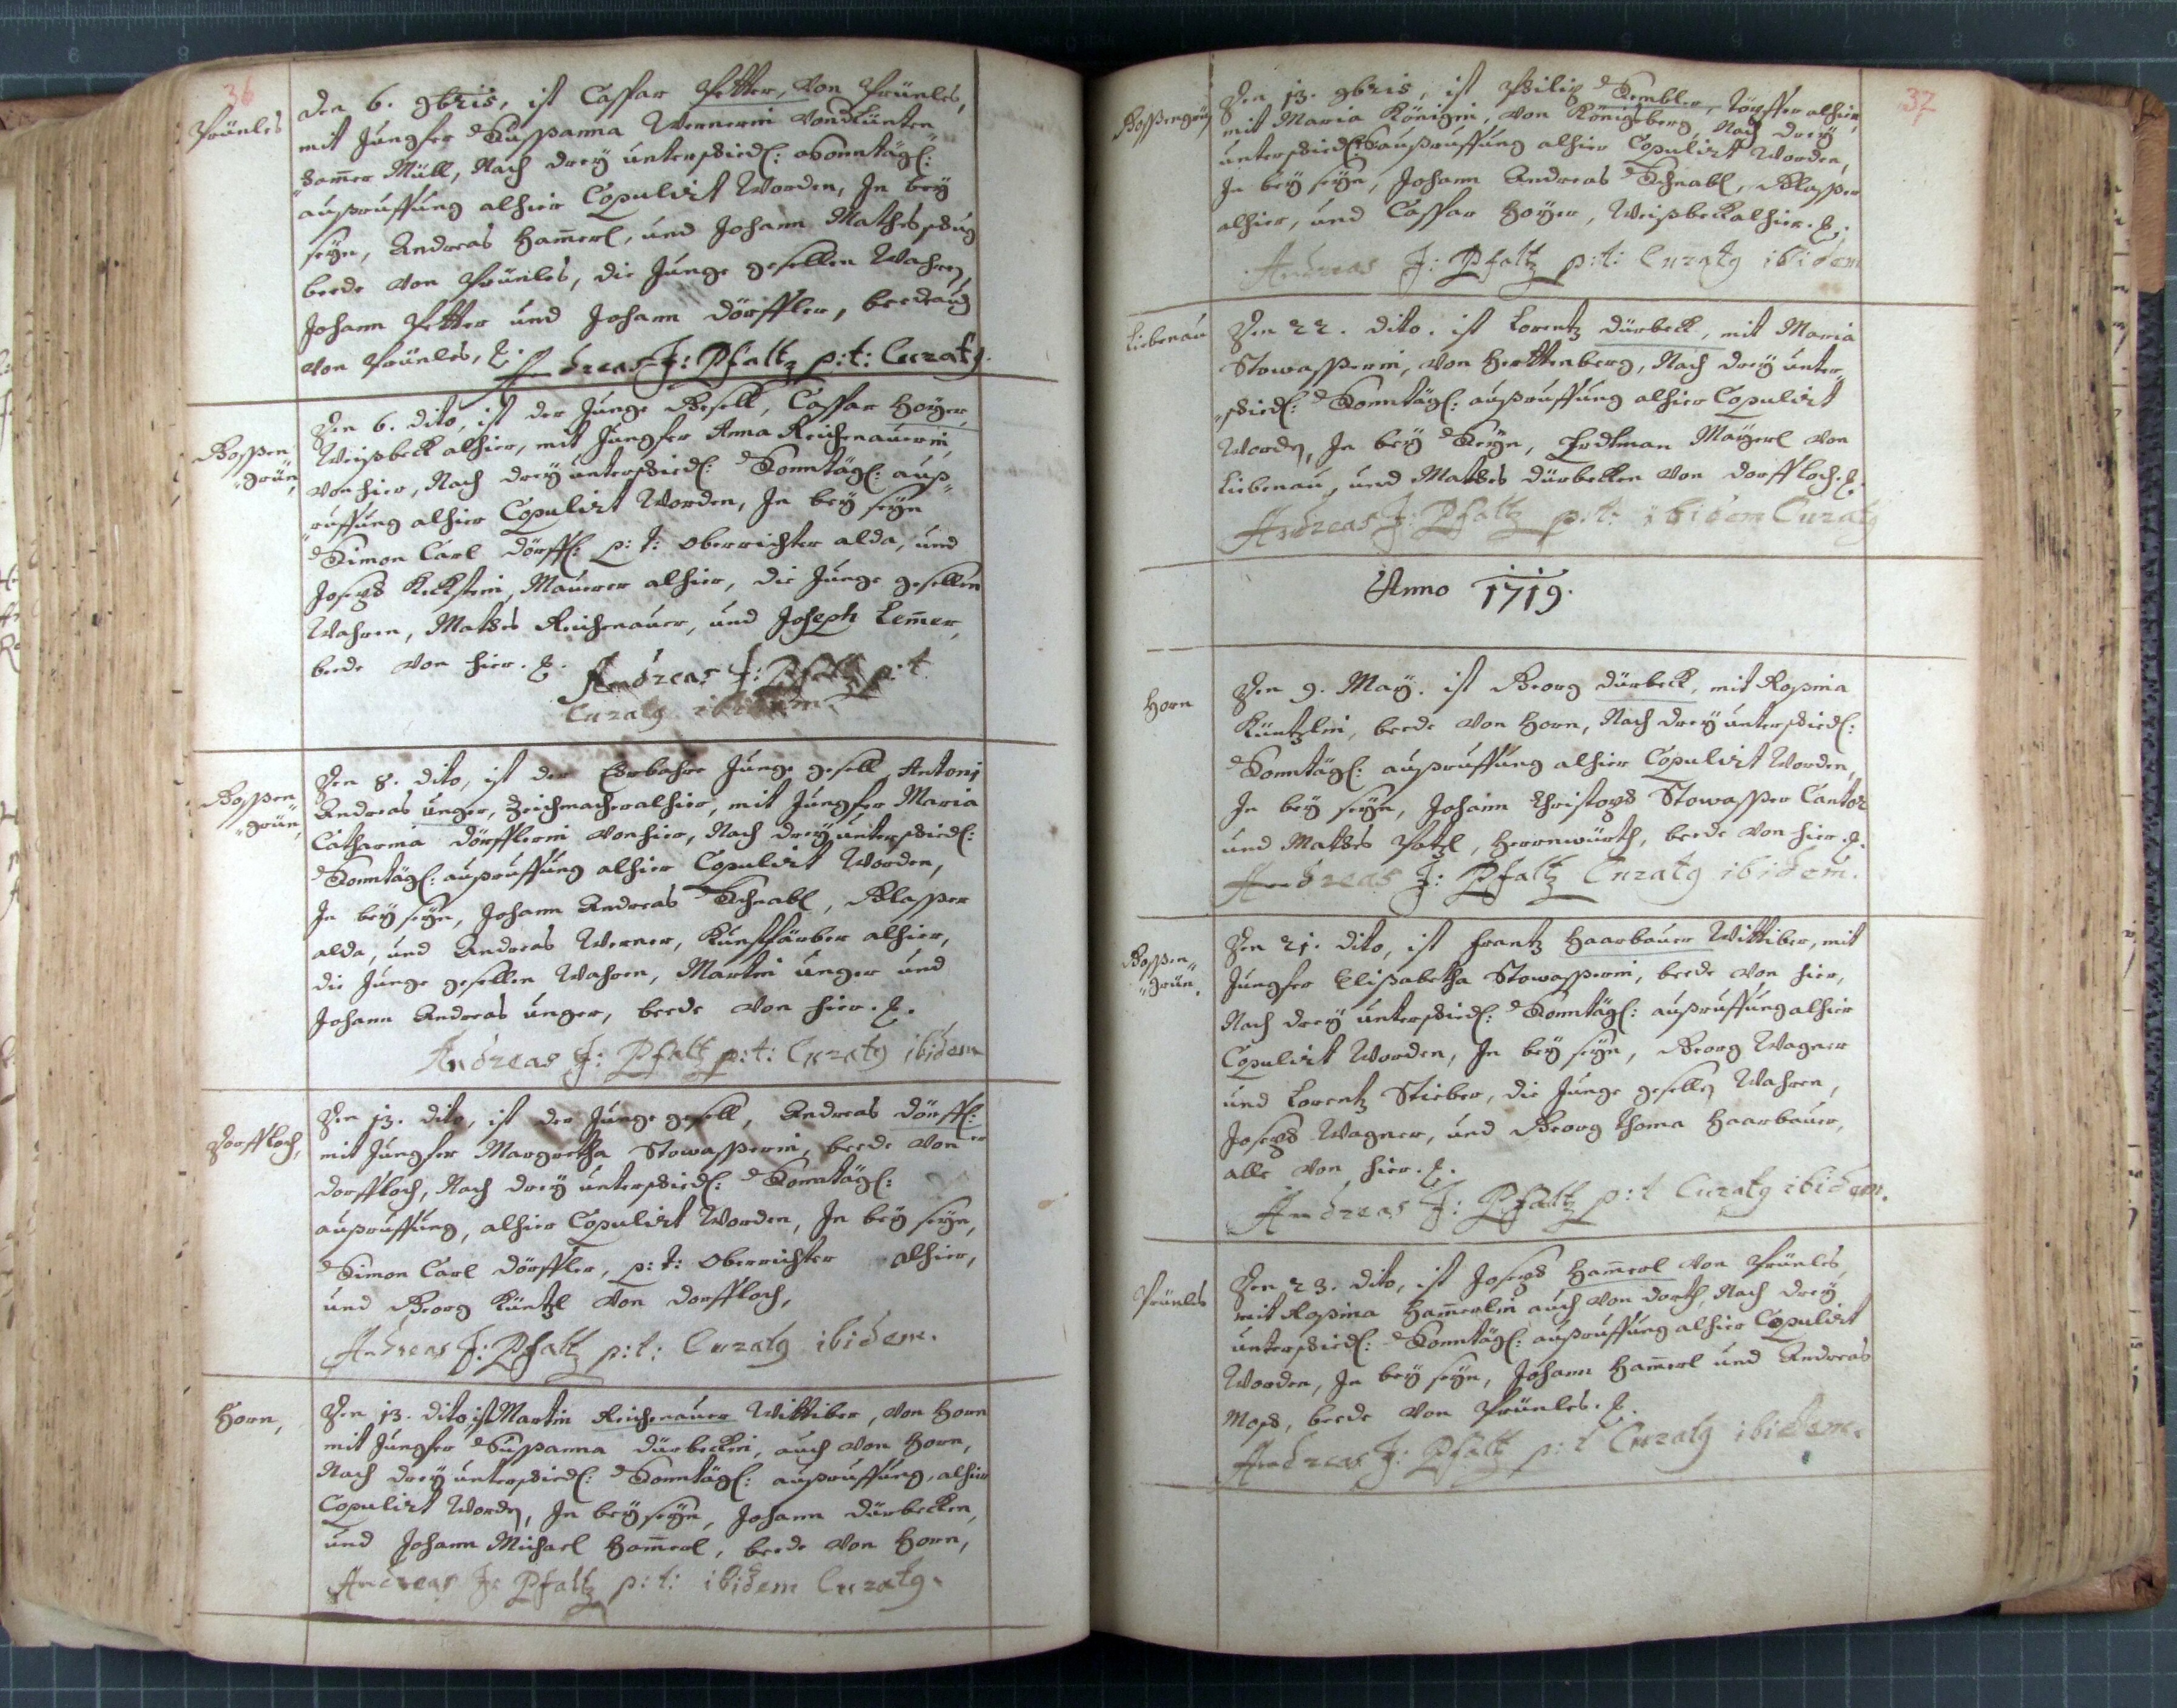 36
Prünles
Den 6. 9bris, ist Caspar Petter, von Prünles,
mit Jungfer Susanna Wernerin von
hamer Müll, Nach drey unterschiedl: Sonntägl:
außruffung alhier Copulirt Worden, In bey
seyn, Andreas Ham̄erl, und Johann Mathes
beede von Prünles, die Junge gesellen Wahren,
Johann Petter und Johann Dörffler, beede auch
von Prünles, Andreas J: Pfaltz p:t: Curatg
Gossen„
„grün,
Den 6. dito, ist der Junge Gesell, Caspar Hoyer,
Weißbeck alhier, mit Jungfer Anna Reichenauerin,
von hier, Nach drey unterschiedl: Sonntägl: auß„
„ruffung alhier Copulirt Worden, In bey seyn
Simon Carl Dörffl: p: t: Oberrichter alda, und
Joseph Keckstein, Maurer alhier, die Junge gesellen
Wahren, Mathes Reichenauer, und Joseph Lem̄er,
beede von hier. Andreas J: Pfaltz p:t
Curatg ibidem
Gossen
„grün,
Den 8. dito, ist der Ehrbahre Junge gesell Antonj
Andreas Unger, Zeichmacher alhier, mit Jungfer Maria
Catharina Dörfflerin von hier, Nach drey unterschiedl:
Sonntägl: außruffung alhier Copulirt Worden,
In bey seyn, Johann Andreas Schnabl, Glasser
alda, und Andreas Werner, Kunstfärber alhier,
die Junge gesellen Wahren, Martin Unger und
Johann Andreas Unger, beede von hier.
Andreas J: Pfaltz p:t: Curatg ibidem
Dorffloch,
Den 13. dito, ist der Junge gesell, Andreas Dörffl:er
mit Jungfer Margretha Stowasserin, beede von
Dorffloch, Nach drey unterschiedl: Sonntägl:
außruffung, alhier Copulirt Worden, In bey seyn,
Simon Carl Dörffler, p: t: Oberrichter alhier,
und Georg Küntzl von Dorffloch,
Andreas J: Pfaltz p:t: Curatg ibidem.
Horn,
Den 13. dito, ist Martin Reichenauer Wittiber, von Horn
mit Jungfer Susanna Dürbeckin, auch von Horn,
Nach drey unterschiedl: Sonntägl: außruffung, alhier
Copulirt Worden, In bey seyn, Johann Dürbecken,
und Johann Michael Ham̄erl, beede von Horn,
Andreas J: Pfaltz p:t: ibidem Curatg.
37
Gossengrün
Den 13. 9bris, ist Philip Sembler, Töpffer alhier,
mit Maria Königin, von Königsberg, Nach drey
unterschiedl: außruffung alhier Copulirt Worden,
In bey seyn, Johann Andreas Schnabl, Glasser
alhier, und Caspar Hoyer, Weißbeck alhier.
Andreas J: Pfaltz p:t: Curatg ibidem
Liebenau
Den 22. dito. ist Lorentz Dürbeck, mit Maria
Stowasserin, von Herttenberg, Nach drey unter„
„schiedl: Sonntägl: außruffung alhier Copulirt
Worden, In bey Seyn, Erdtman Mayerl von
Liebenau, und Mathes Dürbecken von Dorffloch.
Andreas J: Pfaltz p:t: ibidem Curatg
Anno 1719.
Horn
Den 9. May. ist Georg Dürbeck, mit Rosina
Küntzlin, beede von Horn, Nach drey unterschiedl:
Sonntägl: außruffung alhier Copulirt Worden,
In bey seyn, Johann Christoph Stowasser Cantor
und Mathes Patzl, Herrnwürth, beede von hier
Andreas J: Pfaltz Curatg ibidem.
Gossen„
„grün.
Den 21. dito, ist Frantz Haarbauer Wittiber, mit
Jungfer Elisabetha Stowasserin, beede von hier,
Nach drey unterschiedl: Sonntägl: außruffung alhier
Copulirt Worden, In bey seyn, Georg Wagner
und Lorentz Stieber, die Junge gesellen Wahren,
Joseph Wagner, und Georg Thoma Haarbauer,
alle von hier.
Andreas J: Pfaltz p:t Curatg ibidem.
Prünles
Den 23. dito, ist Joseph Ham̄erl von Prünles,
mit Rosina Ham̄erlin auch von dorth, Nach drey
unterschiedl: Sonntägl: außruffung alhier Copulirt
Worden, In bey seyn, Johann Ham̄erl und Andreas
beede von Prünles.
Andreas J: Pfaltz p:t Curatg ibidem.